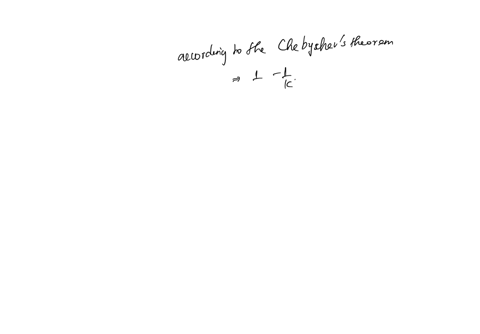 according to the Chebyshev's theorem
⇒ 1 - 1/K.